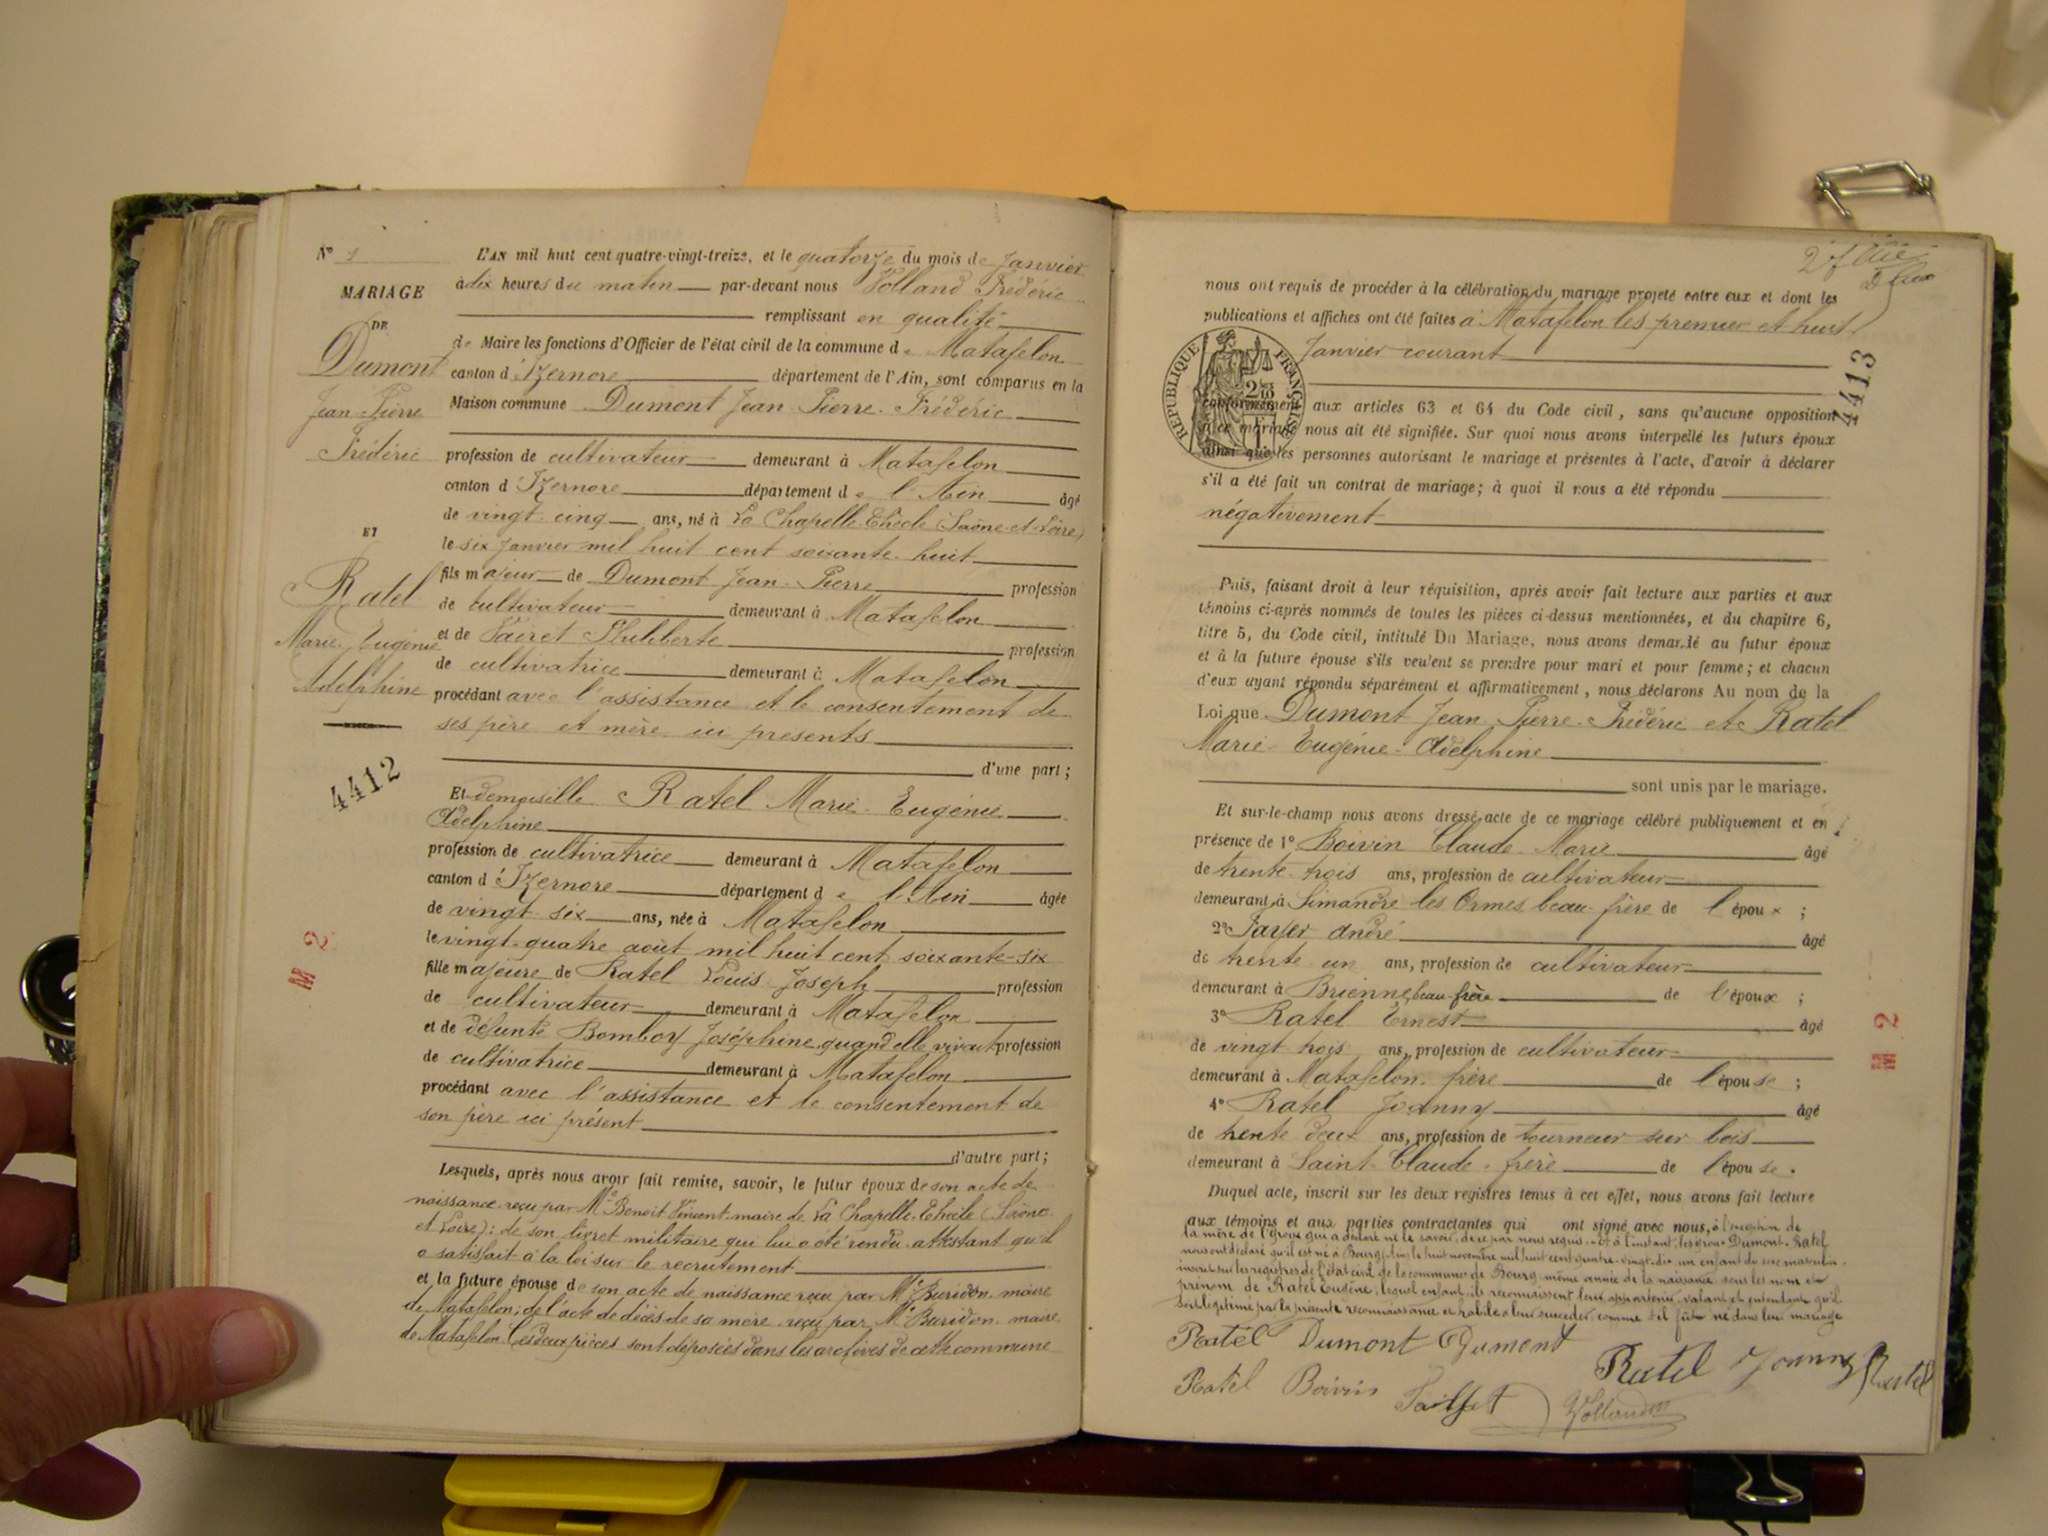 N° 1
MARIAGE
DE
Dumont
Jean-Pierre
Frédéric
ET
Ratel
Marie-Eugénie
Adelphine
4412
M 2
L'AN mil huit cent quatre-vingt-treize, et le quatorze du mois de Janvier
à dix heures du matin par-devant nous Volland Frédéric
remplissant en qualité
de Maire les fonctions d'Officier de l'état civil de la commune de Matafelon
canton d'Izernore département de l'Ain, sont comparus en la
Maison commune Dumont Jean-Pierre-Frédéric
profession de cultivateur demeurant à Matafelon
canton d'Izernore département de l'Ain âgé
de vingt-cinq ans, né à La Chapelle-Thècle (Saône-et-Loire)
le six Janvier mil huit cent soixante-huit
fils majeur de Dumont Jean-Pierre profession
de cultivateur demeurant à Matafelon
et de Philiberte profession
de cultivatrice demeurant à Matafelon
procédant avec l'assistance et le consentement de
ses père et mère ici présents
d'une part;
Et demoiselle Ratel Marie-Eugénie
Adelphine
profession de cultivatrice demeurant à Matafelon
canton d'Izernore département de l'Ain âgée
de vingt-six ans, née à Matafelon
le vingt-quatre août mil huit cent soixante-six
fille majeure de Ratel Louis-Joseph profession
de cultivateur demeurant à Matafelon
et de défunte Bomboy Joséphine quand elle vivait profession
de cultivatrice demeurant à Matafelon
procédant avec l'assistance et le consentement de
son père ici présent
d'autre part;
Lesquels, après nous avoir fait remise, savoir, le futur époux de son acte de
naissance reçu par Mr Benoit Vincent maire de La Chapelle-Thècle (Saône
et Loire): de son livret militaire qui lui a été rendu attestant qu'il
a satisfait à la loi sur le recrutement
et la future épouse de son acte de naissance reçu par Mr Buridon maire
de Matafelon; de l'acte de décès de sa mère reçu par Mr Buridon maire
de Matafelon. Ces deux pièces sont déposées dans les archives de cette commune
4413
nous ont requis de procéder à la célébration du mariage projeté entre eux et dont les
publications et affiches ont été faites à Matafelon les premier et huit
Janvier courant
RÉPUBLIQUE FRANÇAISE
conformément aux articles 63 et 64 du Code civil, sans qu'aucune opposition
à ce mariage nous ait été signifiée. Sur quoi nous avons interpellé les futurs époux
ainsi que les personnes autorisant le mariage et présentes à l'acte, d'avoir à déclarer
s'il a été fait un contrat de mariage; à quoi il nous a été répondu
négativement
Puis, faisant droit à leur réquisition, après avoir fait lecture aux parties et aux
témoins ci-après nommés de toutes les pièces ci-dessus mentionnées, et du chapitre 6,
titre 5, du Code civil, intitulé Du Mariage, nous avons demandé au futur époux
et à la future épouse s'ils veulent se prendre pour mari et pour femme; et chacun
d'eux ayant répondu séparément et affirmativement, nous déclarons Au nom de la
Loi que Dumont Jean-Pierre-Frédéric et Ratel
Marie-Eugénie-Adelphine
sont unis par le mariage.
Et sur-le-champ nous avons dressé acte de ce mariage célébré publiquement et en
présence de 1° Boivin Claude-Marie âgé
de trente-trois ans, profession de cultivateur
demeurant à Simandre les Ormes beau-frère de l'époux;
2° André âgé
de trente un ans, profession de cultivateur
demeurant à Brienne beau-frère de l'époux;
3° Ratel Ernest âgé
de vingt trois ans, profession de cultivateur
demeurant à Matafelon frère de l'épouse;
4° Ratel Joanny âgé
de trente deux ans, profession de tourneur sur bois
demeurant à Saint-Claude frère de l'épouse.
Duquel acte, inscrit sur les deux registres tenus à cet effet, nous avons fait lecture
aux témoins et aux parties contractantes qui ont signé avec nous, à l'exception de
la mère de l'époux qui a déclaré ne le savoir, de ce par nous requis. Et à l'instant, les époux Dumont-Ratel
nous ont déclaré qu'il est né à Bourg, Ain, le huit novembre mil huit cent quatre-vingt-dix un enfant du sexe masculin
inscrit sur les registres de l'état civil de la commune de Bourg même année de la naissance sous les nom et
prénom de Ratel Eugène, lequel enfant ils reconnaissent leur appartenir, valant et entendant qu'il
soit légitimé par la présente reconnaissance et habile à leur succéder comme s'il fût né dans leur mariage
Ratel Dumont Dumont
Ratel Joanny Ratel
Ratel Boivin
Volland
M 2